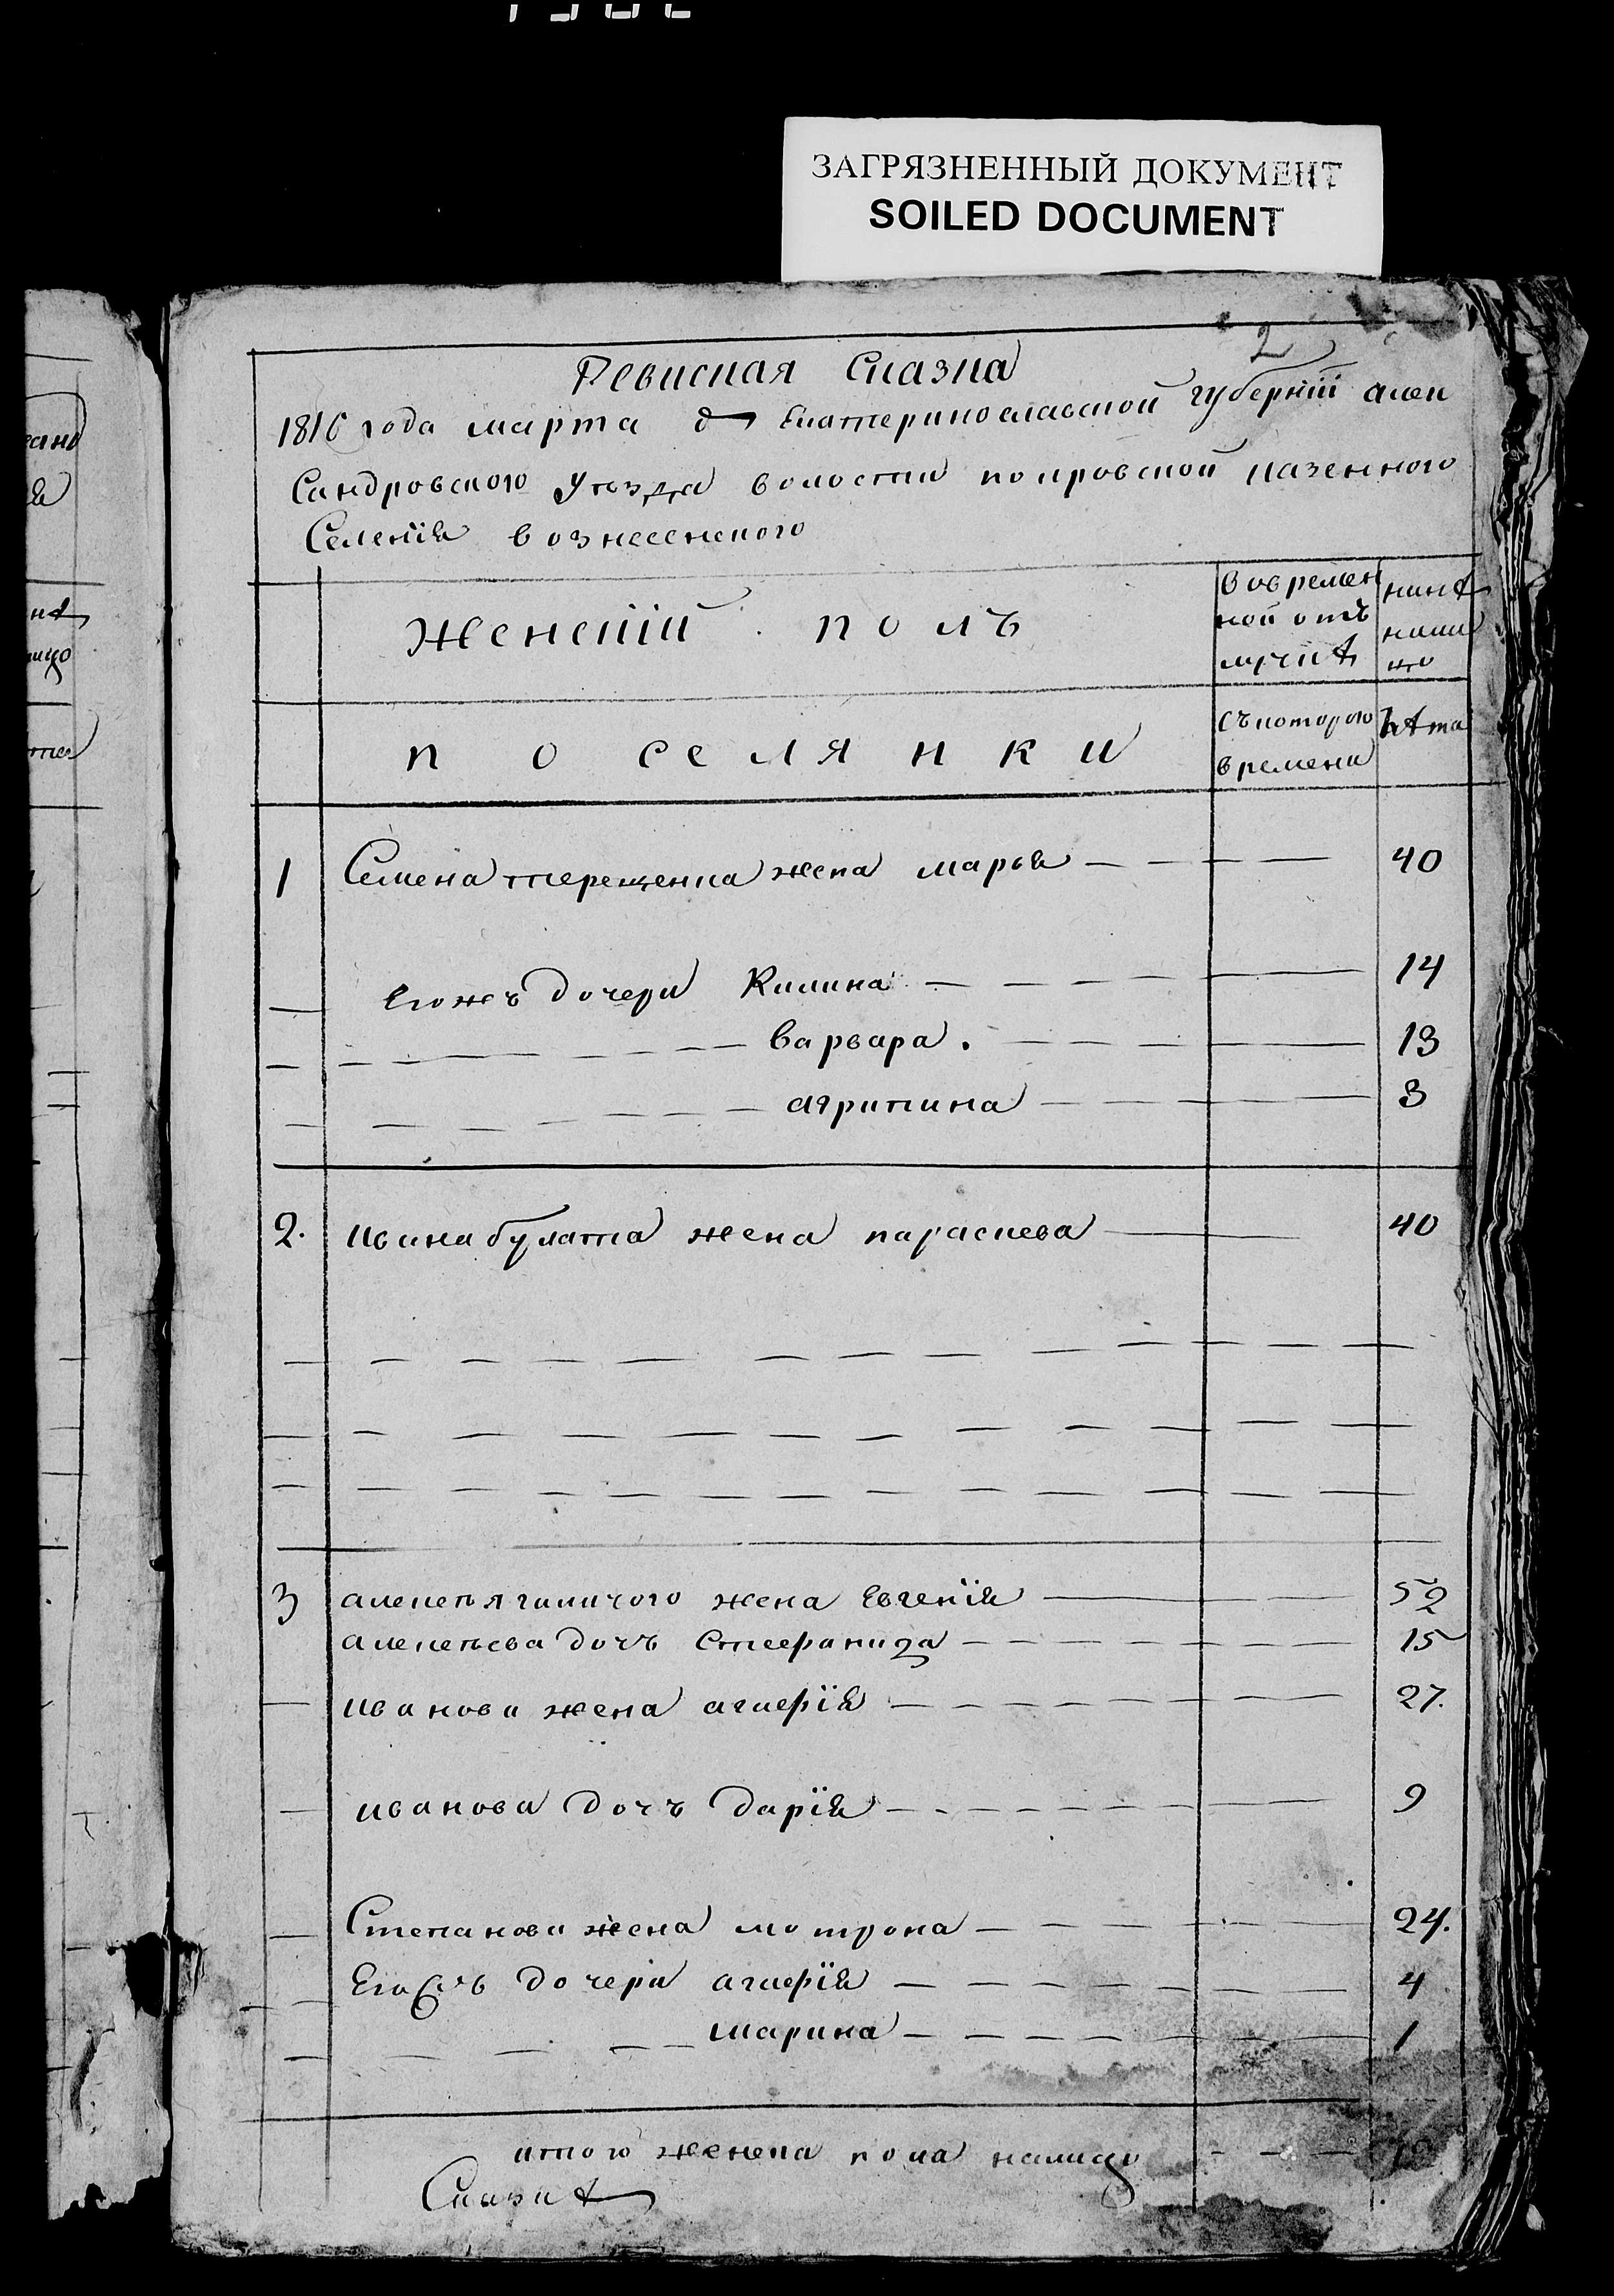 ЗАГРЯЗНЕННЫЙ ДОКУМЕНТ
SOILED DOCUMENT
2
Ревиская Сказка
1816 года марта д Екатеринославской губернїи алек
сандровского уезда волости покровской казенного
Селенїя вознесенского
женскїй полъ
вовремен
ной отъ
лучкѣ
нинѣ
нали
цо
поселянки
съкоторого
времени
лѣта
1 Семена терещенка жена марья 40
Егожъ дочери Килина 14
варвара. 13
агрипина 3
2. ивана булата жена параскева 40
3 алексея жена Евгенїя 52
алексеева дочъ Стефанида 15
иванова жена агафїя 27.
иванова дочъ дарїя 9
Степанова жена мотрона 24.
Егожъ дочери агафїя 4
марина 1
итого женска пола налицо
Сказкѣ